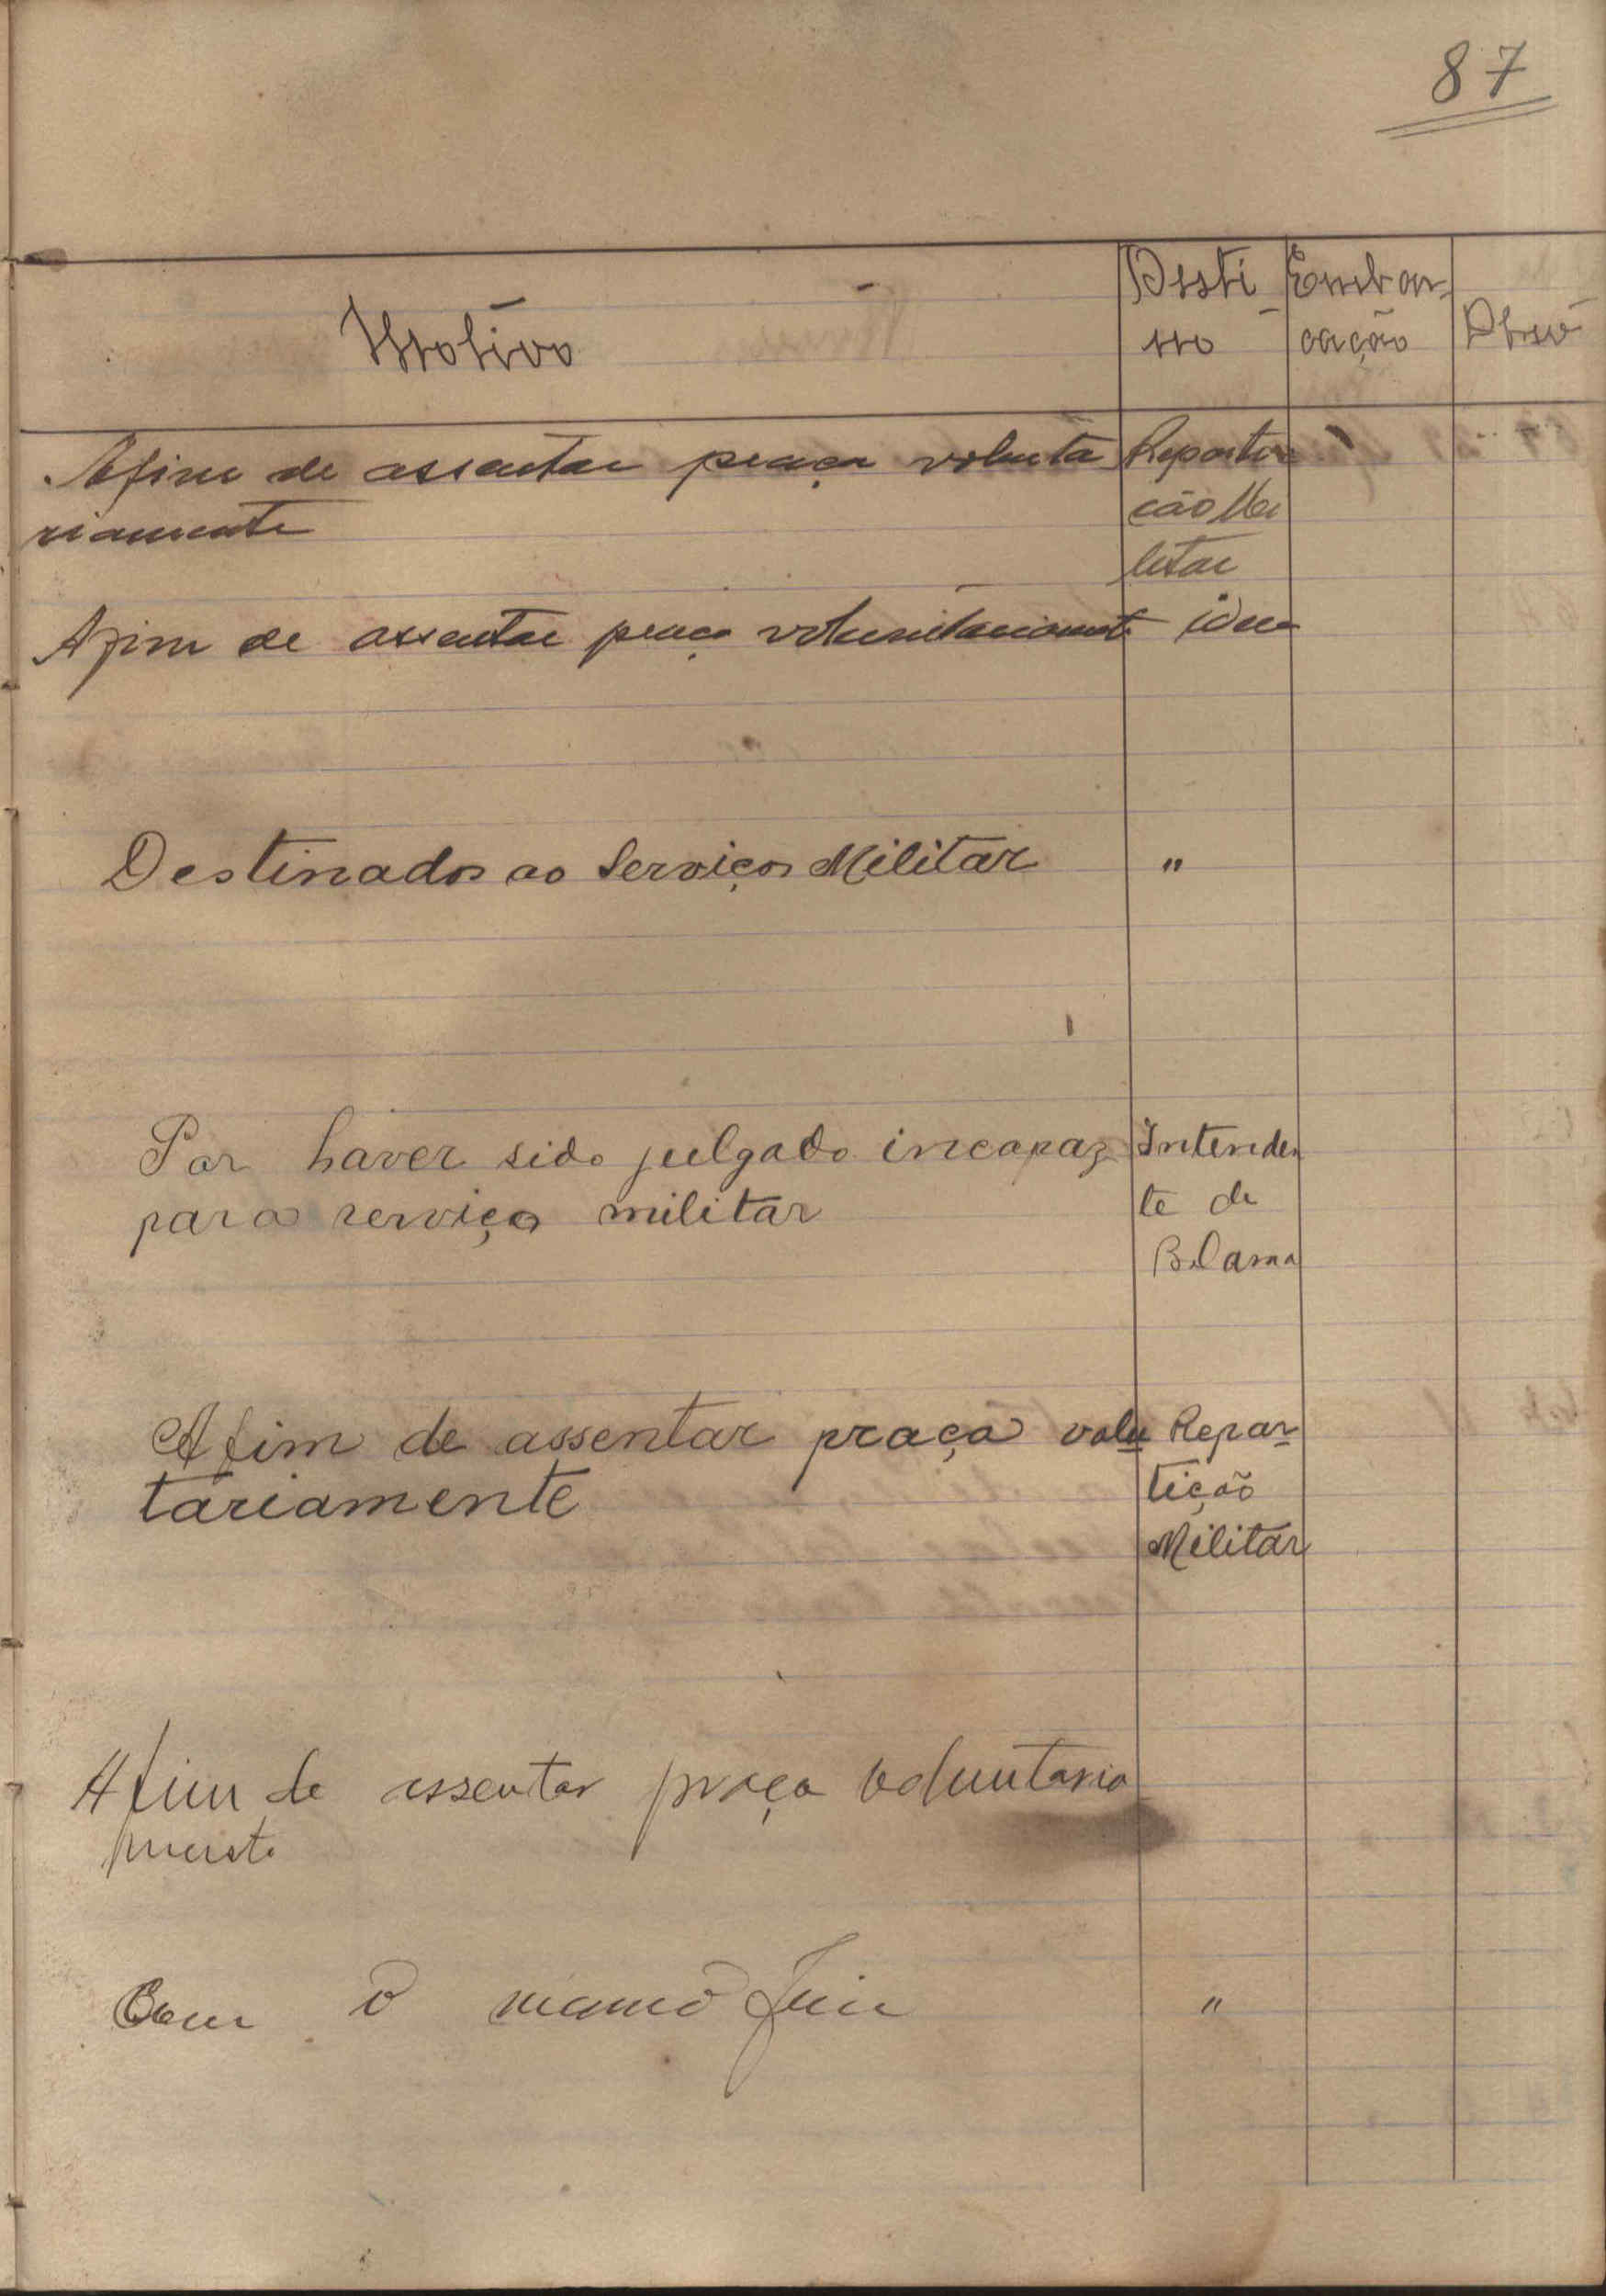 87
Motivo
Desti
no
Embar-
cação
Obsv
Afim de assentar praça volunta
riamente
Reparti
ção Mi
litar
Afim de assentar praça voluntariamente idem
Destinados ao Serviço Militar "
Por haver sido julgado incapaz
para serviço militar
Intenden
te de
Bolama
Afim de assentar praça volu
tariamente
Repar-
tição
Militar
Afim de assentar praça voluntaria
mente
Com o mesmo fim "